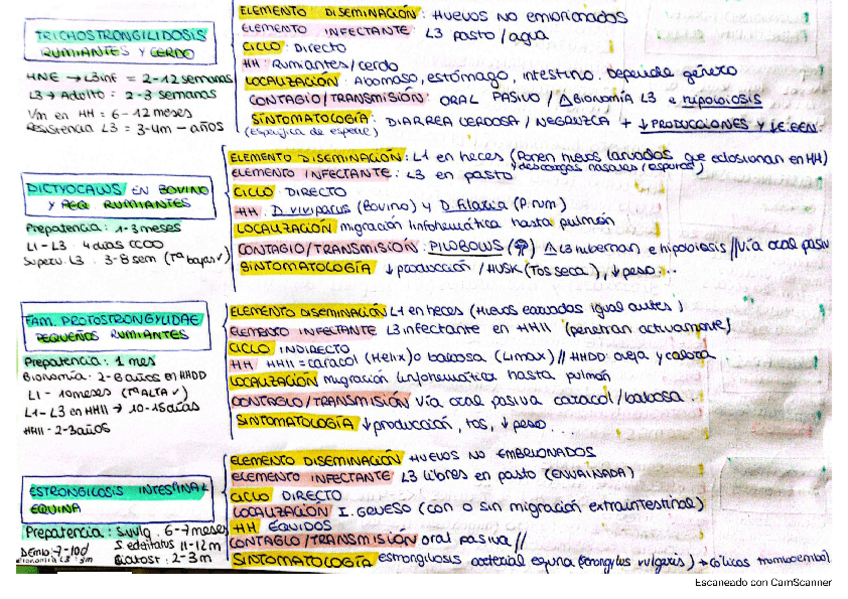 TRICHOSTRONGILIDOSIS
RUMIANTES Y CERDO
HNE → L3inf = 2-12 semanas
L3 → Adulto = 2-3 semanas
Vm en HH = 6-12 meses
Resistencia L3 = 3-4m - años
ELEMENTO DISEMINACIÓN: HUEVOS NO EMBRIONADOS
ELEMENTO INFECTANTE: L3 pasto / agua
CICLO: Directo
HH: Rumiantes/cerdo
LOCALIZACIÓN: Abomaso, estómago, intestino. Depende género
CONTAGIO/TRANSMISIÓN: ORAL PASIVO / Δ Bionomía L3 e hipobiosis
SINTOMATOLOGÍA: DIARREA VERDOSA / NEGRUZCA + ↓ PRODUCCIONES Y ↓ E.GEN.
(Específica de especie)
DICTYOCAULUS EN BOVINO
Y PEQ RUMIANTES
Prepatencia: 1-3 meses
L1-L3: 4 días CCOO
Superv. L3: 3-8 sem (Tª bajas ✓)
ELEMENTO DISEMINACIÓN: L1 en heces (Ponen huevos larvados que eclosionan en HH)
ELEMENTO INFECTANTE: L3 en pasto descargas nasales/esputos)
CICLO DIRECTO
HH: D. viviparus (Bovino) y D. filaria (P. rum)
LOCALIZACIÓN migración linfohemática hasta pulmón
CONTAGIO/TRANSMISIÓN: PILOBOLUS Δ L3 hibernan e hipobiosis // Vía oral pasiv
SINTOMATOLOGÍA ↓ producción / HUSK (Tos seca), ↓ peso...
FAM. PROTOSTRONGYLIDAE
PEQUEÑOS RUMIANTES
Prepatencia: 1 mes
Bionomía: 2-6 años en HHDD
L1 - 10 meses (Tª ALTA ✓)
L1-L3 en HHII → 10-15 días
HHII - 2-3 años
ELEMENTO DISEMINACIÓN L1 en heces (Huevos larvados igual antes)
ELEMENTO INFECTANTE L3 infectante en HHII (penetran activamente)
CICLO INDIRECTO
HH HHII = caracol (Helix) o babosa (Limax) // HHDD: oveja y cabra
LOCALIZACIÓN migración linfohemática hasta pulmón
CONTAGIO/TRANSMISIÓN Vía oral pasiva caracol / babosa.
SINTOMATOLOGÍA ↓ producción, tos, ↓ peso...
ESTRONGILOSIS INTESTINAL
EQUINA
Prepatencia: S. vulg. 6-7 meses
S. edentatus 11-12m
Ciatost: 2-3m
Bionomía L3: 3m
ELEMENTO DISEMINACIÓN HUEVOS NO EMBRIONADOS
ELEMENTO INFECTANTE L3 libres en pasto (ENVAINADA)
CICLO DIRECTO
LOCALIZACIÓN I. GRUESO (con o sin migración extraintestinal)
HH ÉQUIDOS
CONTAGIO/TRANSMISIÓN oral pasiva //
SINTOMATOLOGÍA estrongilosis arterial equina (Strongylus vulgaris) → cólicos tromboembol
Escaneado con CamScanner